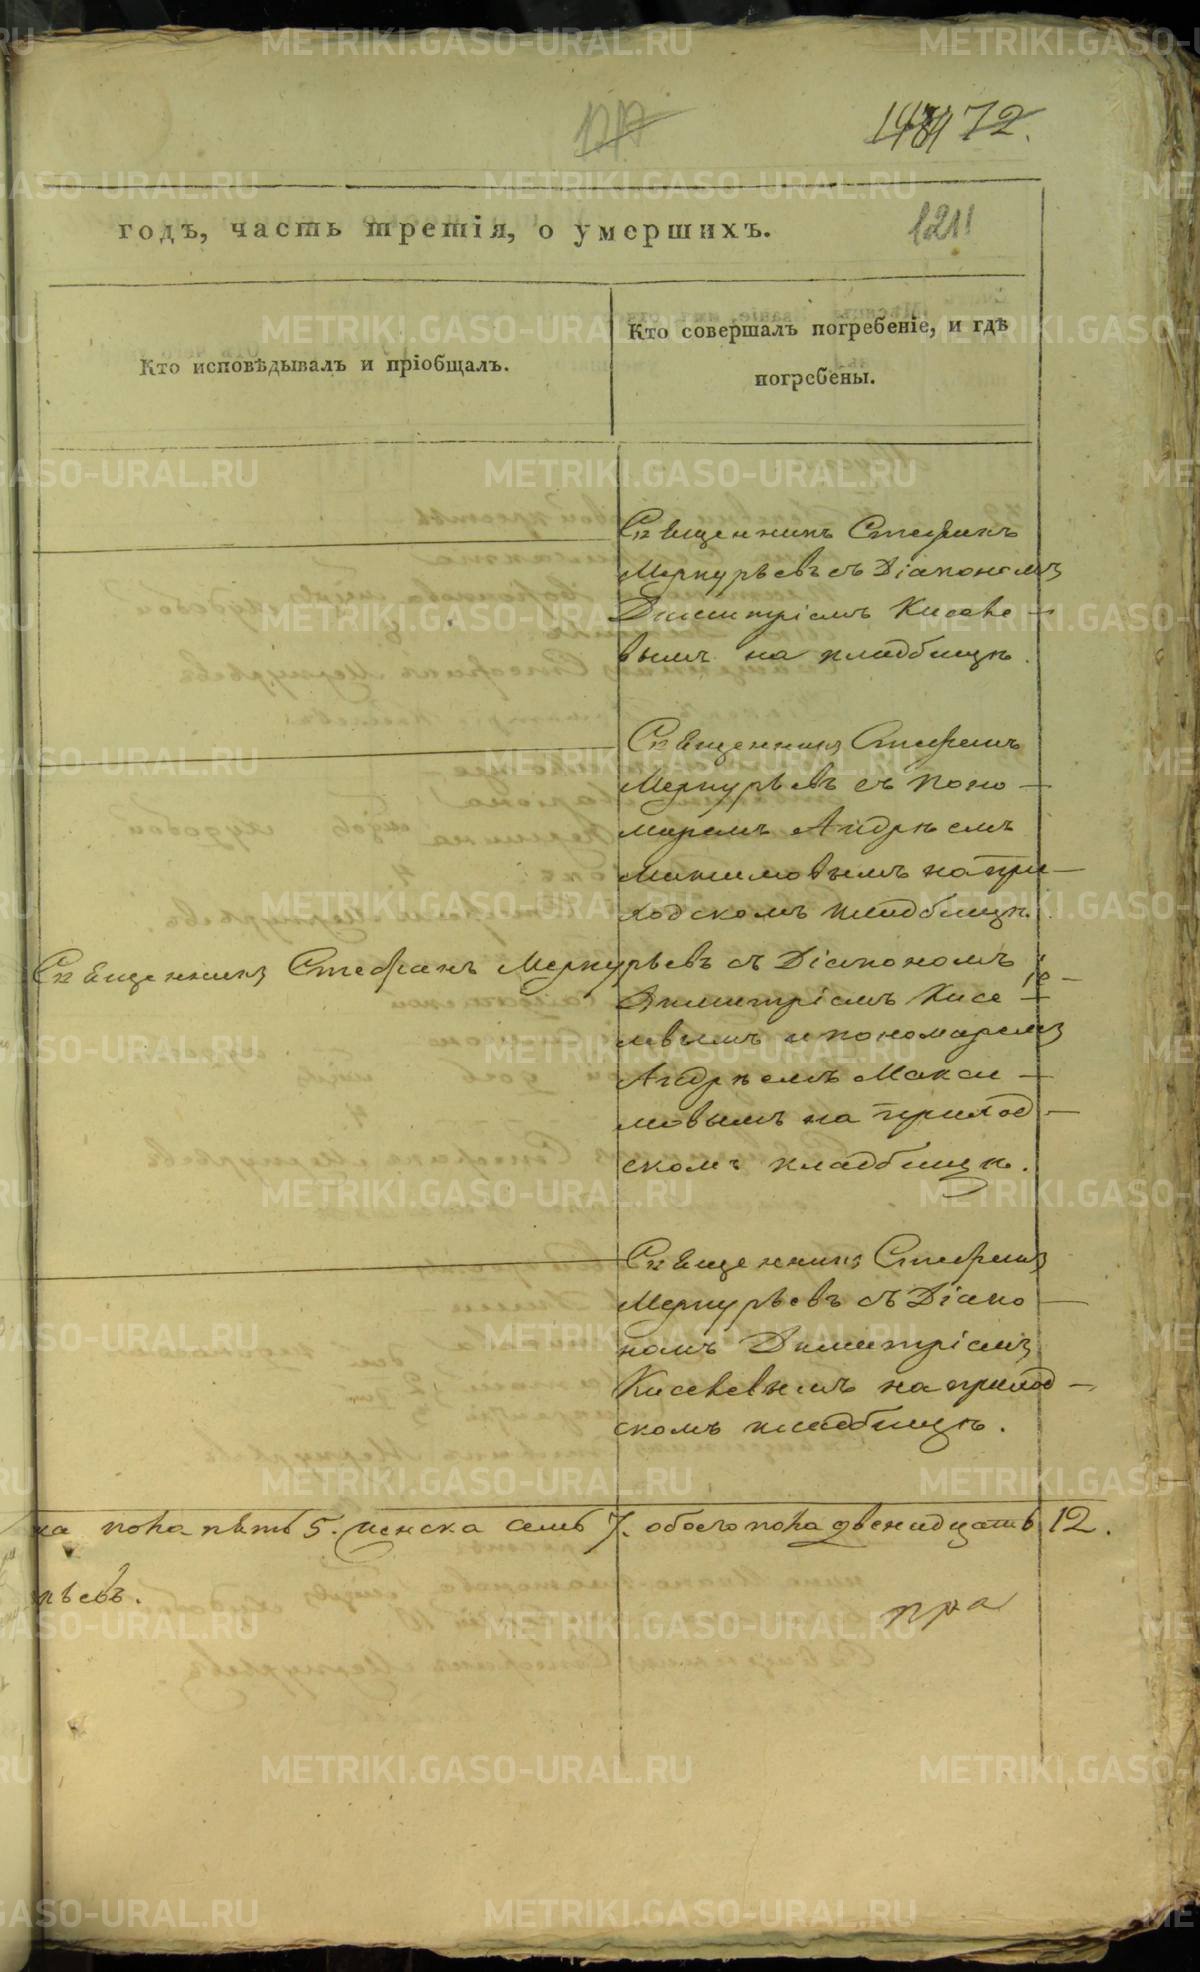 72.
годъ, часть третія, о умершихъ.
1211
Кто исповѣдывалъ и пріобщалъ.
Кто совершалъ погребеніе, и гдѣ
погребены.
Священникъ Стефанъ
Меркурьевъ съ Діакономъ
Димитріемъ Киселе-
вымъ на кладбищѣ.
Священникъ Стефанъ
Меркурьевъ съ Поно-
маремъ Андрѣемъ
Максимовымъ на при-
ходскомъ кладбищѣ.
Священникъ Стефанъ Меркурьевъ съ Діакономъ
Димитріемъ Кисе-
левымъ и пономаремъ
Андрѣемъ Макси-
мовымъ на приход-
скомъ кладбищѣ.
Священникъ Стефанъ
Меркурьевъ съ Діако-
номъ Димитріемъ
Киселевымъ на приход-
скомъ кладбищѣ.
ка пола пять 5. женска семь 7. обоего пола двенадцать 12.
рьевъ.
METRIKI.GASO-URAL.RU